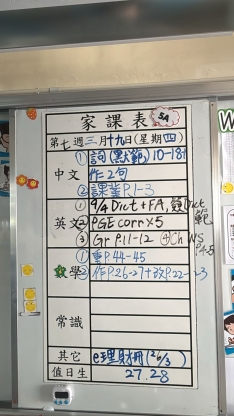 家課表 5A
第七週三月十九日(星期四)
中文 ①詞(默範)10-18
作2句
②課業P.1-3
英文 ①9/4 Dict + FA, 簽Dict範
②PGE corr x 5
③Gr P.11-12 ④Ch NS P.4-5
數學 ①重P.44-45
②作P.26-27+改P.22-23
常識
其它 e理財冊(26/3)
值日生 27.28
W